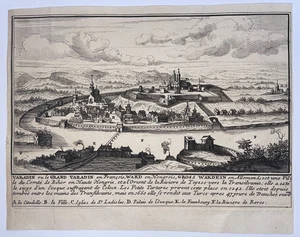 VARADIN ou le GRAND VARADIN en François, WARD en Hongrois, GROSS WARDEIN en Allemand, est une Vil
le du Comté de Bihor en Haute Hongrie, et a l'Orient de la Riviere de Teysse vers la Transilvanie, elle a esté
le siege d'un Evesque suffragant de Colocza. Les Petits Tartares prirent cette place en 1242. Elle etoit depuis
tombée entre les mains des Transsilvains, mais en 1660 elle se rendit aux Turcs apres 47 jours de Tranchée ouverte
A. la Citadelle B. la Ville, C. Eglise de St. Ladislas, D. Palais de l'Evesque, E. le Fauxbourg, F. la Riviere de Keres.